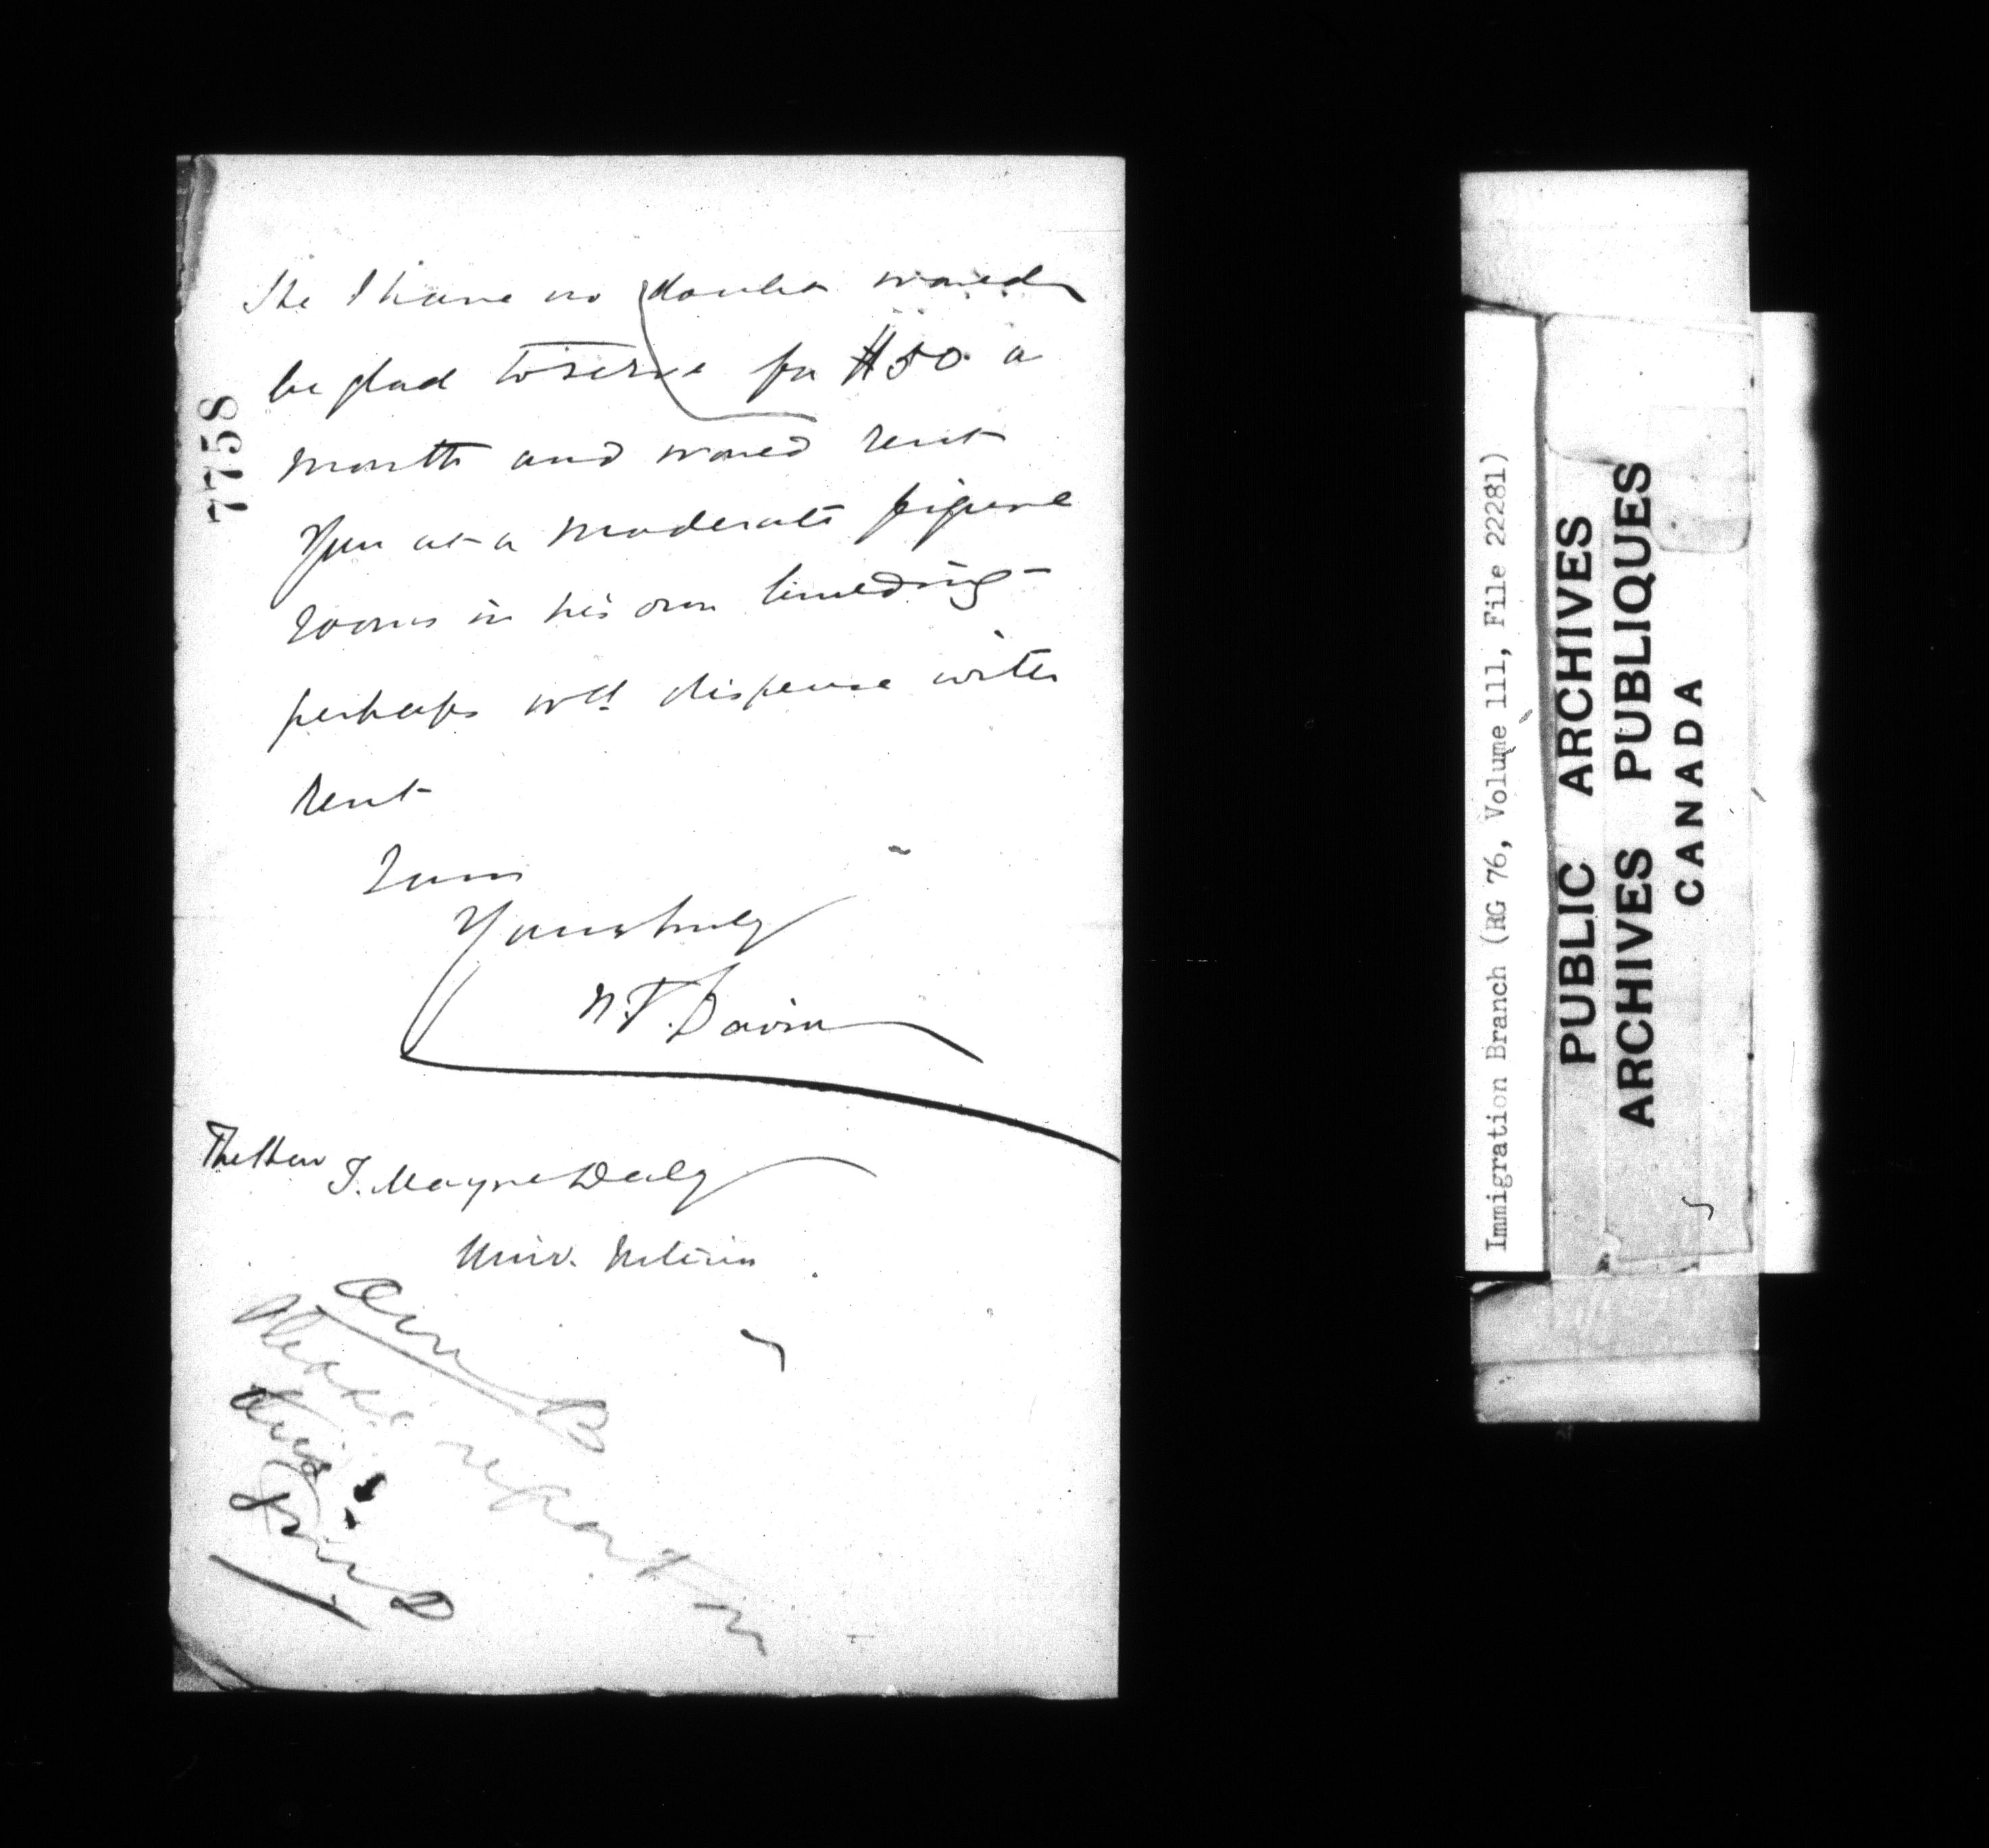 She I have no doubt would
be glad to serve for $50 a
month and would rent
you at a moderate figure
rooms in his own building -
perhaps wld dispense with
rent
I am
Yours truly
N.F. Davin
The Hon T. Mayne Daly
Min. Interior
7758
Please report
this
Immigration Branch (RG 76, Volume 111, File 22281)
PUBLIC ARCHIVES
ARCHIVES PUBLIQUES
CANADA